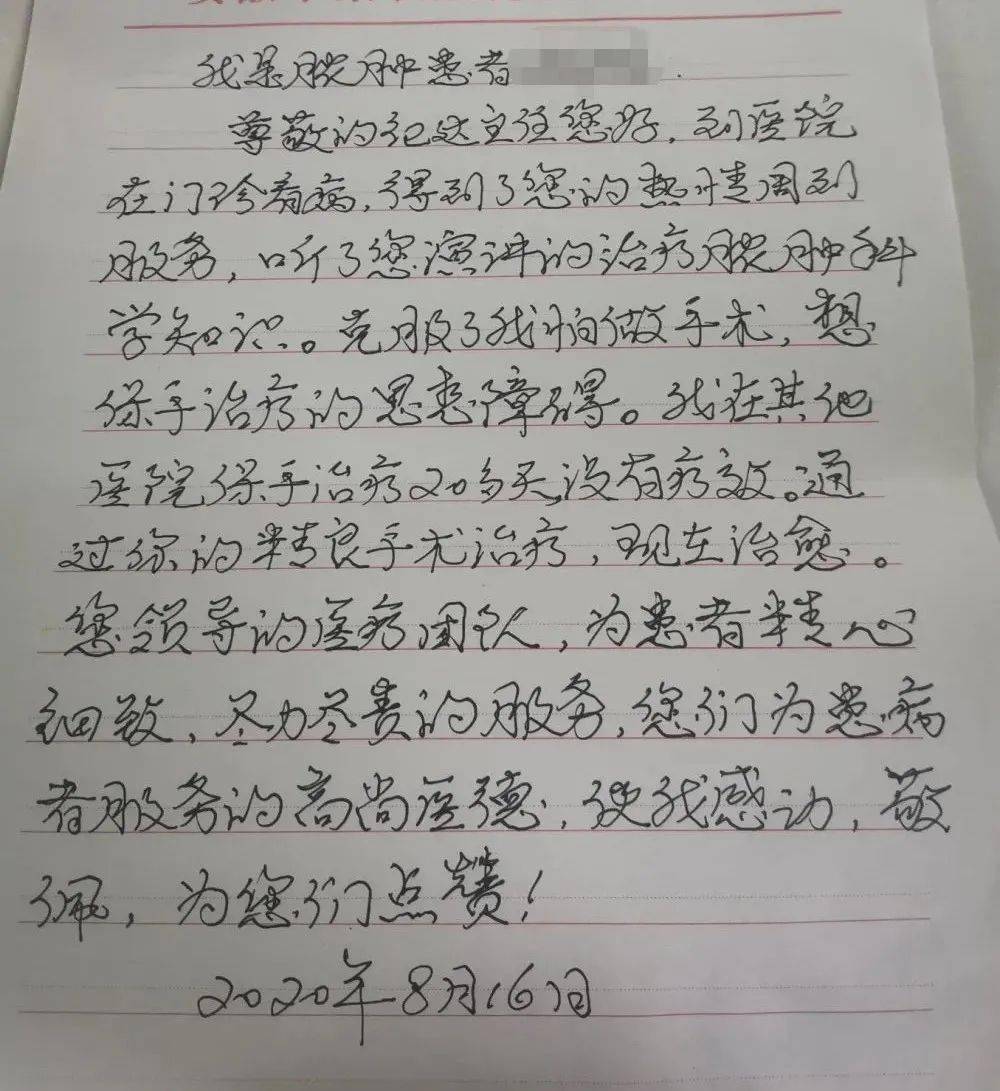 我是脓肿患者
尊敬的纪达主任您好，到医院
在门诊看病，得到了您的热情周到
服务，听了您演讲的治疗脓肿科
学知识。克服了我怕做手术，想
保手治疗的思想障碍。我在其他
医院保手治疗20多天没有疗效。通
过你的精良手术治疗，现在治愈。
您领导的医疗团队，为患者精心
细致，尽力尽责的服务，您们为患病
者服务的高尚医德，使我感动，敬
佩，为您们点赞！
2020年8月16日